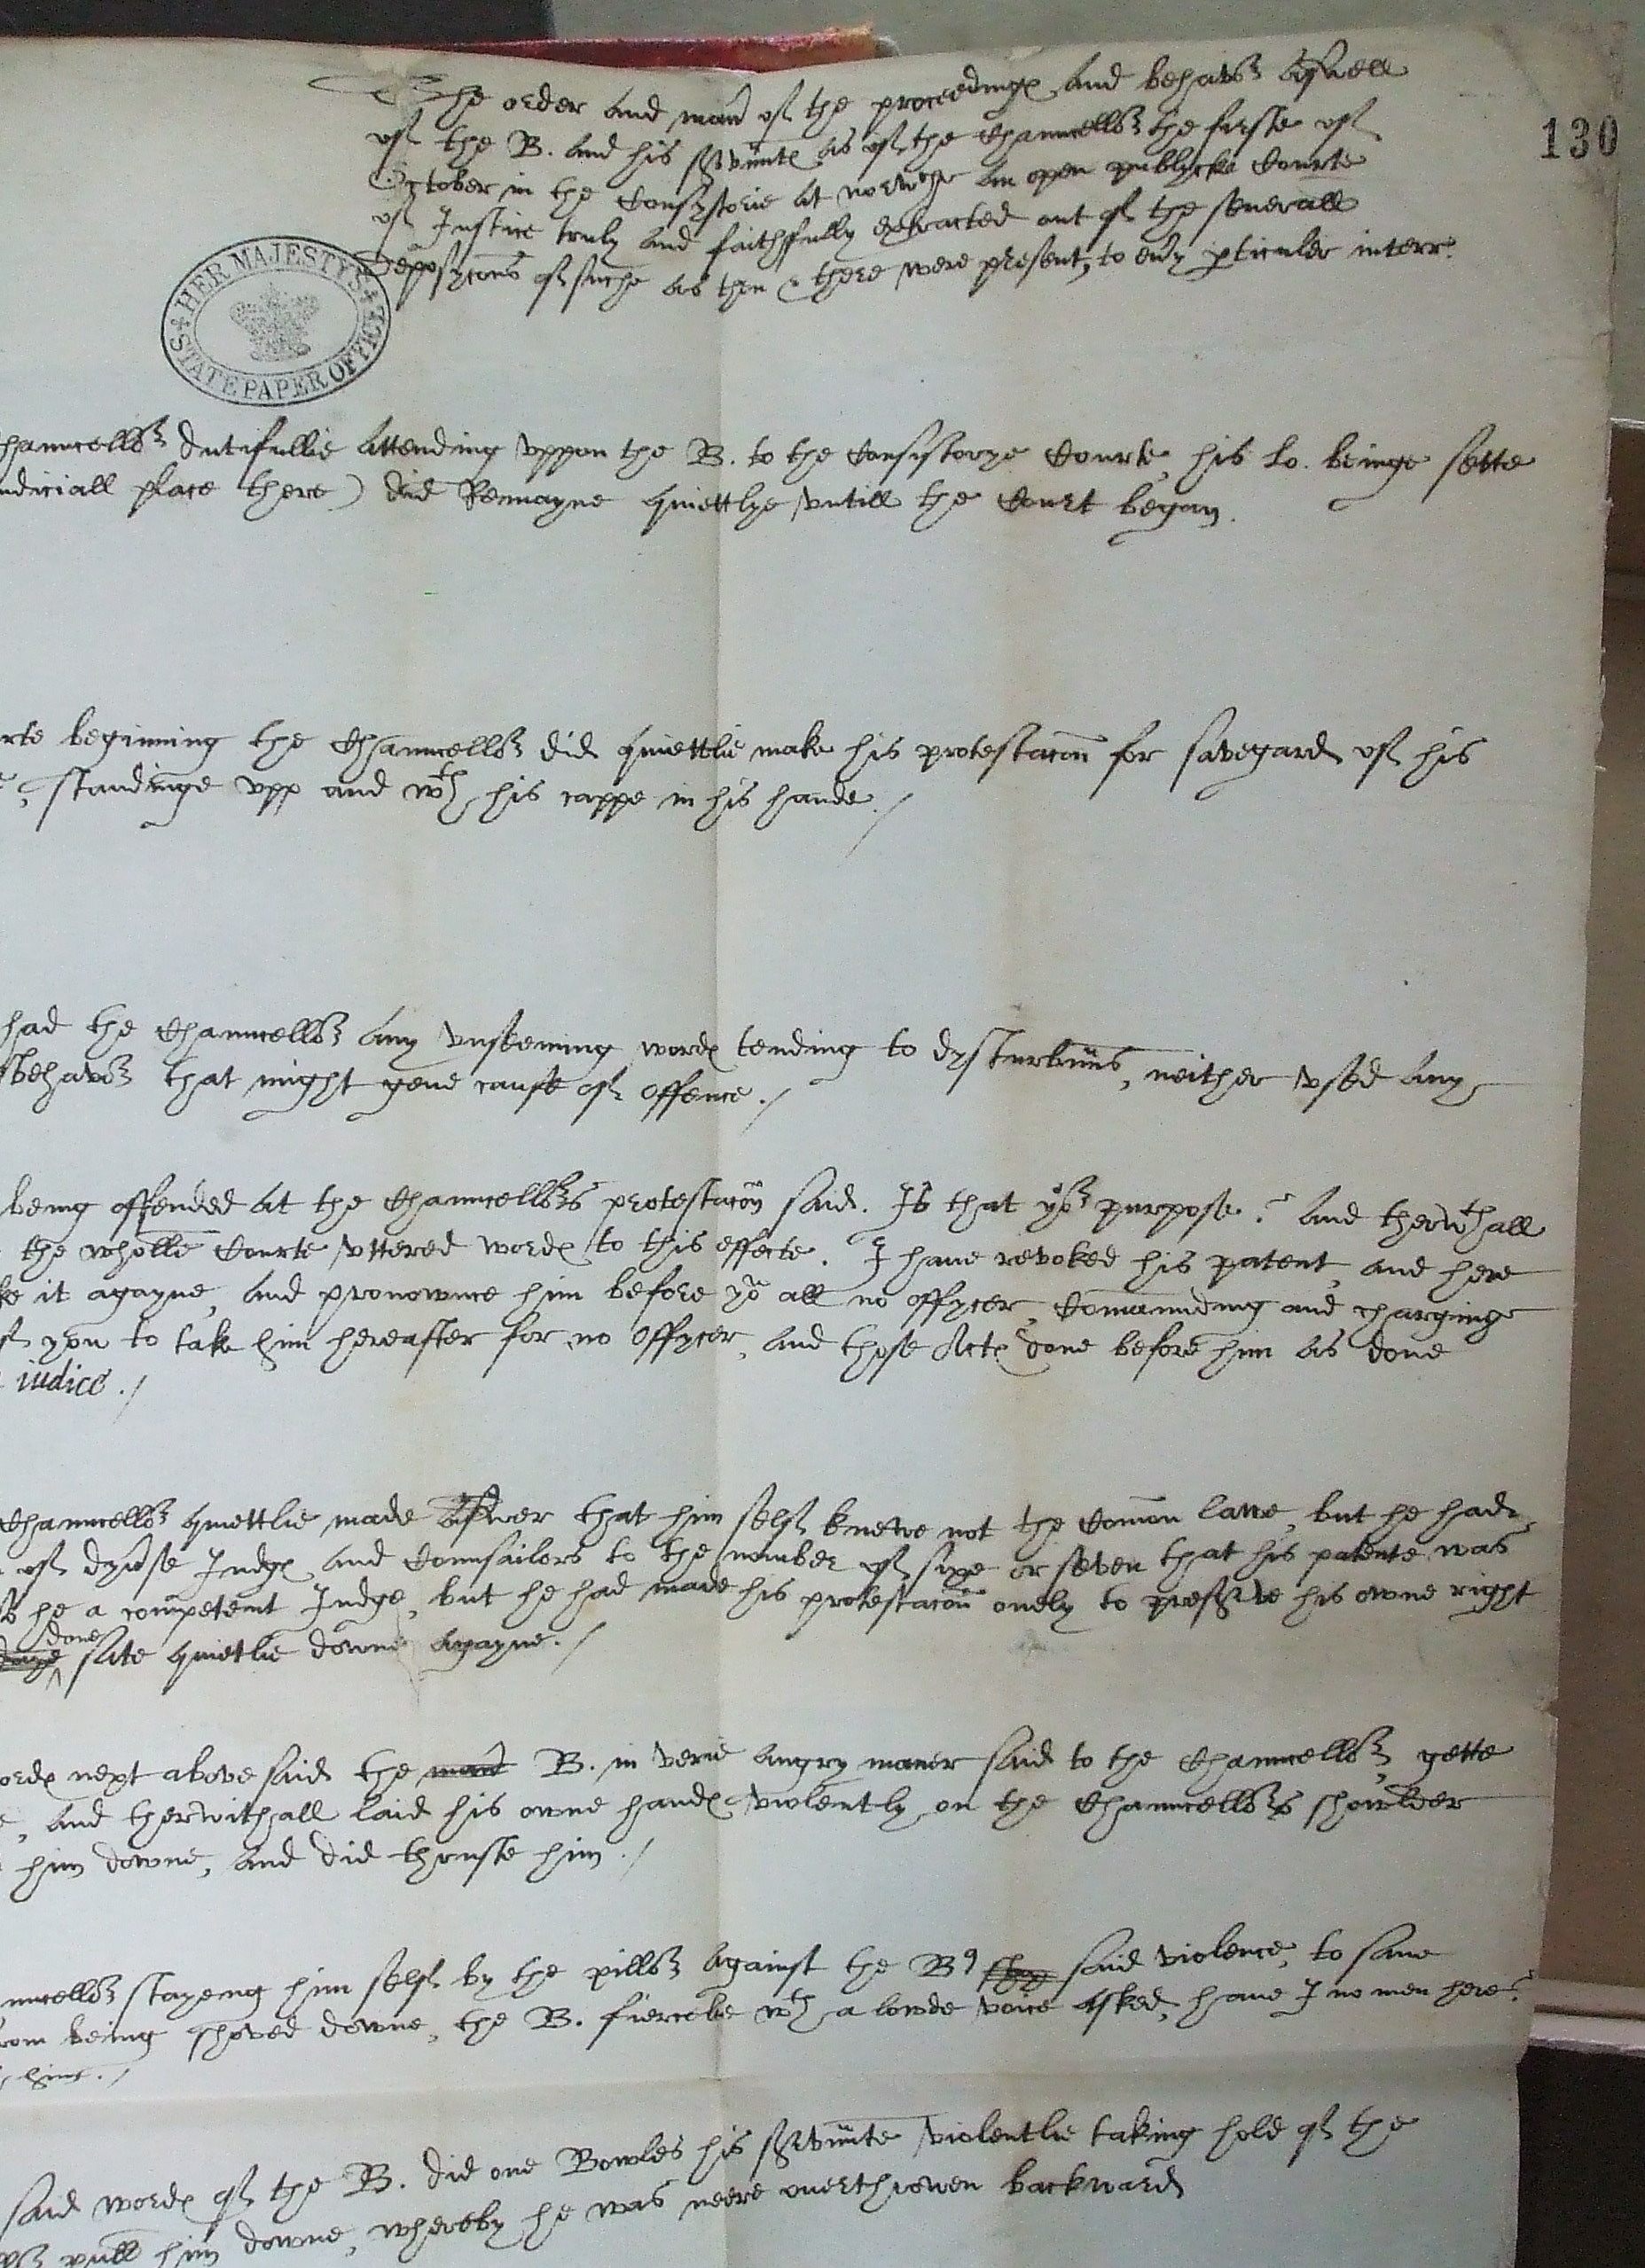 The order and man̄ of the proceedinges and behavor aswell
of the B. and his servuntes as of the Chauncellor the firste of
October in the Consystorie at Norwch an open publycke Courte
of Justice truly and faithffully extracted out of the severall
Deposycōns of suche as then & there were present, to eūy pticuler interr.
130
HER MAJESTY'S
STATE PAPER OFFICE
hauncellor dutifullie attending vppon the B. to the Consistorye Courte, his Lo. beinge sette
udiciall place there) did Remayne quiettlye vntill the Court began.
rte beginning the Chauncellor did quiettlie make his protestacōn for savegard of his
, standinge vpp and wth his cappe in his hande ./
had the Chauncellor any vnseeming wordes tending to dysturbuns, neither vsed any
sbehavor that might geue cause of offence ./
being offended at the Chauncellors protestacōn said. Is that yor purpose? And therwthall
the wholle Courte vttered wordes to this effecte. I haue revoked his patent, and here
ke it agayne, and pronownce him before yo all no offycer, Comaunding and charginge
of you to take him hereafter for no Offycer, and those Actes done before him as done
iudice ./
Chauncellor quiettlie made aswer that him self knewe not the Comōn lawe, but he had
of dyūse Judges and Counsailors to the nomber of sixe or seven that his patente was
he a competent Judge, but he had made his protestacōn onely to preserve his owne right
done
sate quietlie downe agayne ./
ordes next above said the man̄ B. in verie angry maner said to the Chauncellor, gette
, and therwithall laid his owne handes violently on the Chauncellors showlder
him downe, and did thruste him ./
uncellor stayeng him self by the pillor against the Bs said violence, to saue
rom being shoved downe, the B. fiercelie wth a lowde voice asked, haue I no men here?
him ./
said wordes of the B. did one Bowles his servunte violentlie taking hold of the
pull him downe, whereby he was neere overthrowen backward